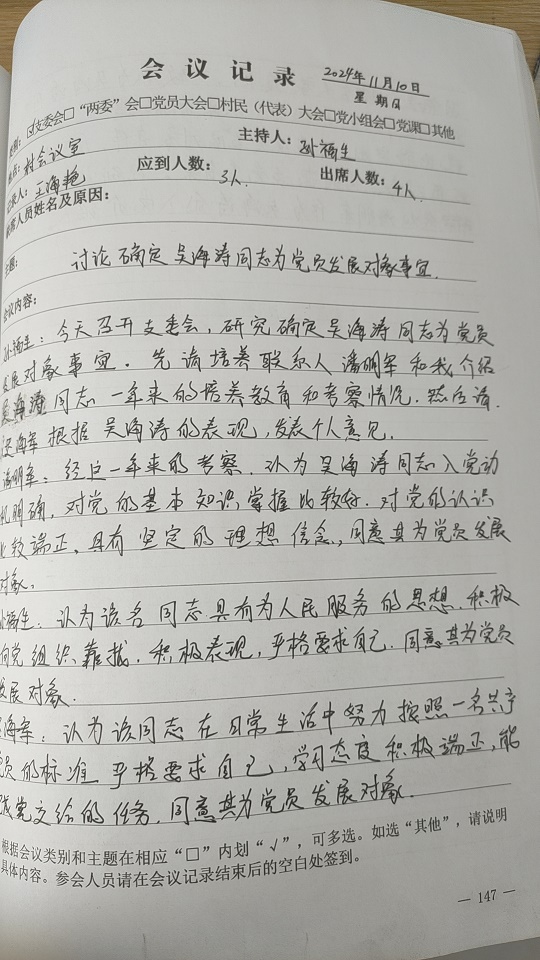 会议记录 2024年11月10日
星期日
类别：☑支委会□“两委”会□党员大会□村民（代表）大会□党小组会□党课□其他
地点：村会议室 主持人：孙福生
记录人：王海艳 应到人数：3人. 出席人数：4人.
缺席人员姓名及原因：
主题： 讨论确定吴海涛同志为党员发展对象事宜.
会议内容：
孙福生：今天召开支委会，研究确定吴海涛同志为党员
发展对象事宜. 先请培养联系人潘明军和我介绍
吴海涛同志一年来的培养教育和考察情况. 然后请
海军根据吴海涛的表现，发表个人意见.
潘明军：经过一年来的考察. 认为吴海涛同志入党动
机明确，对党的基本知识掌握比较好. 对党的认识
比较端正. 具有坚定的理想信念，同意其为党员发展
对象.
孙福生：认为该名同志具有为人民服务的思想. 积极
向党组织靠拢. 积极表现，严格要求自己. 同意其为党员
发展对象.
海军：认为该同志在日常生活中努力按照一名共产
党员的标准严格要求自己，学习态度积极端正，能
成党交给的任务. 同意其为党员发展对象.
根据会议类别和主题在相应“□”内划“√”，可多选。如选“其他”，请说明
具体内容。参会人员请在会议记录结束后的空白处签到。
— 147 —